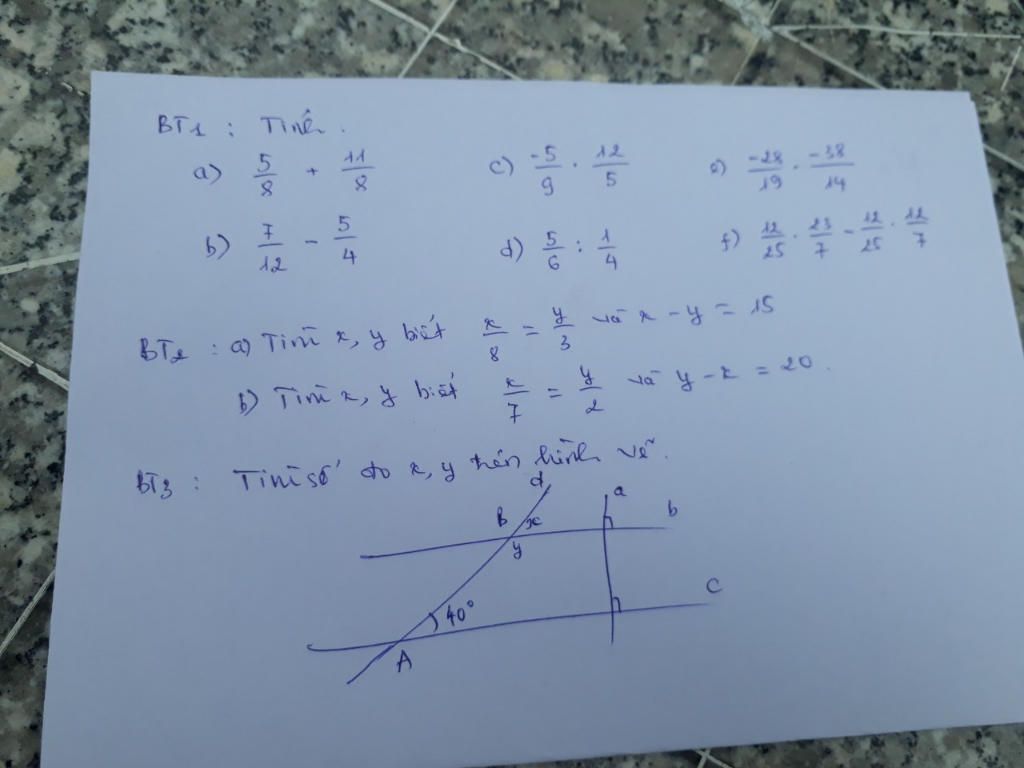 BT1 : Tính.
a) 5/8 + 11/8 c) -5/9 . 12/5 e) -28/19 . -38/14
b) 7/12 - 5/4 d) 5/6 : 1/4 f) 12/25 . 23/7 - 12/25 . 12/7
BT2 : a) Tìm x, y biết x/8 = y/3 và x - y = 15
b) Tìm x, y biết x/7 = y/2 và y - x = 20.
BT3 : Tìm số đo x, y trên hình vẽ.
d a
B x b
y
40° C
A